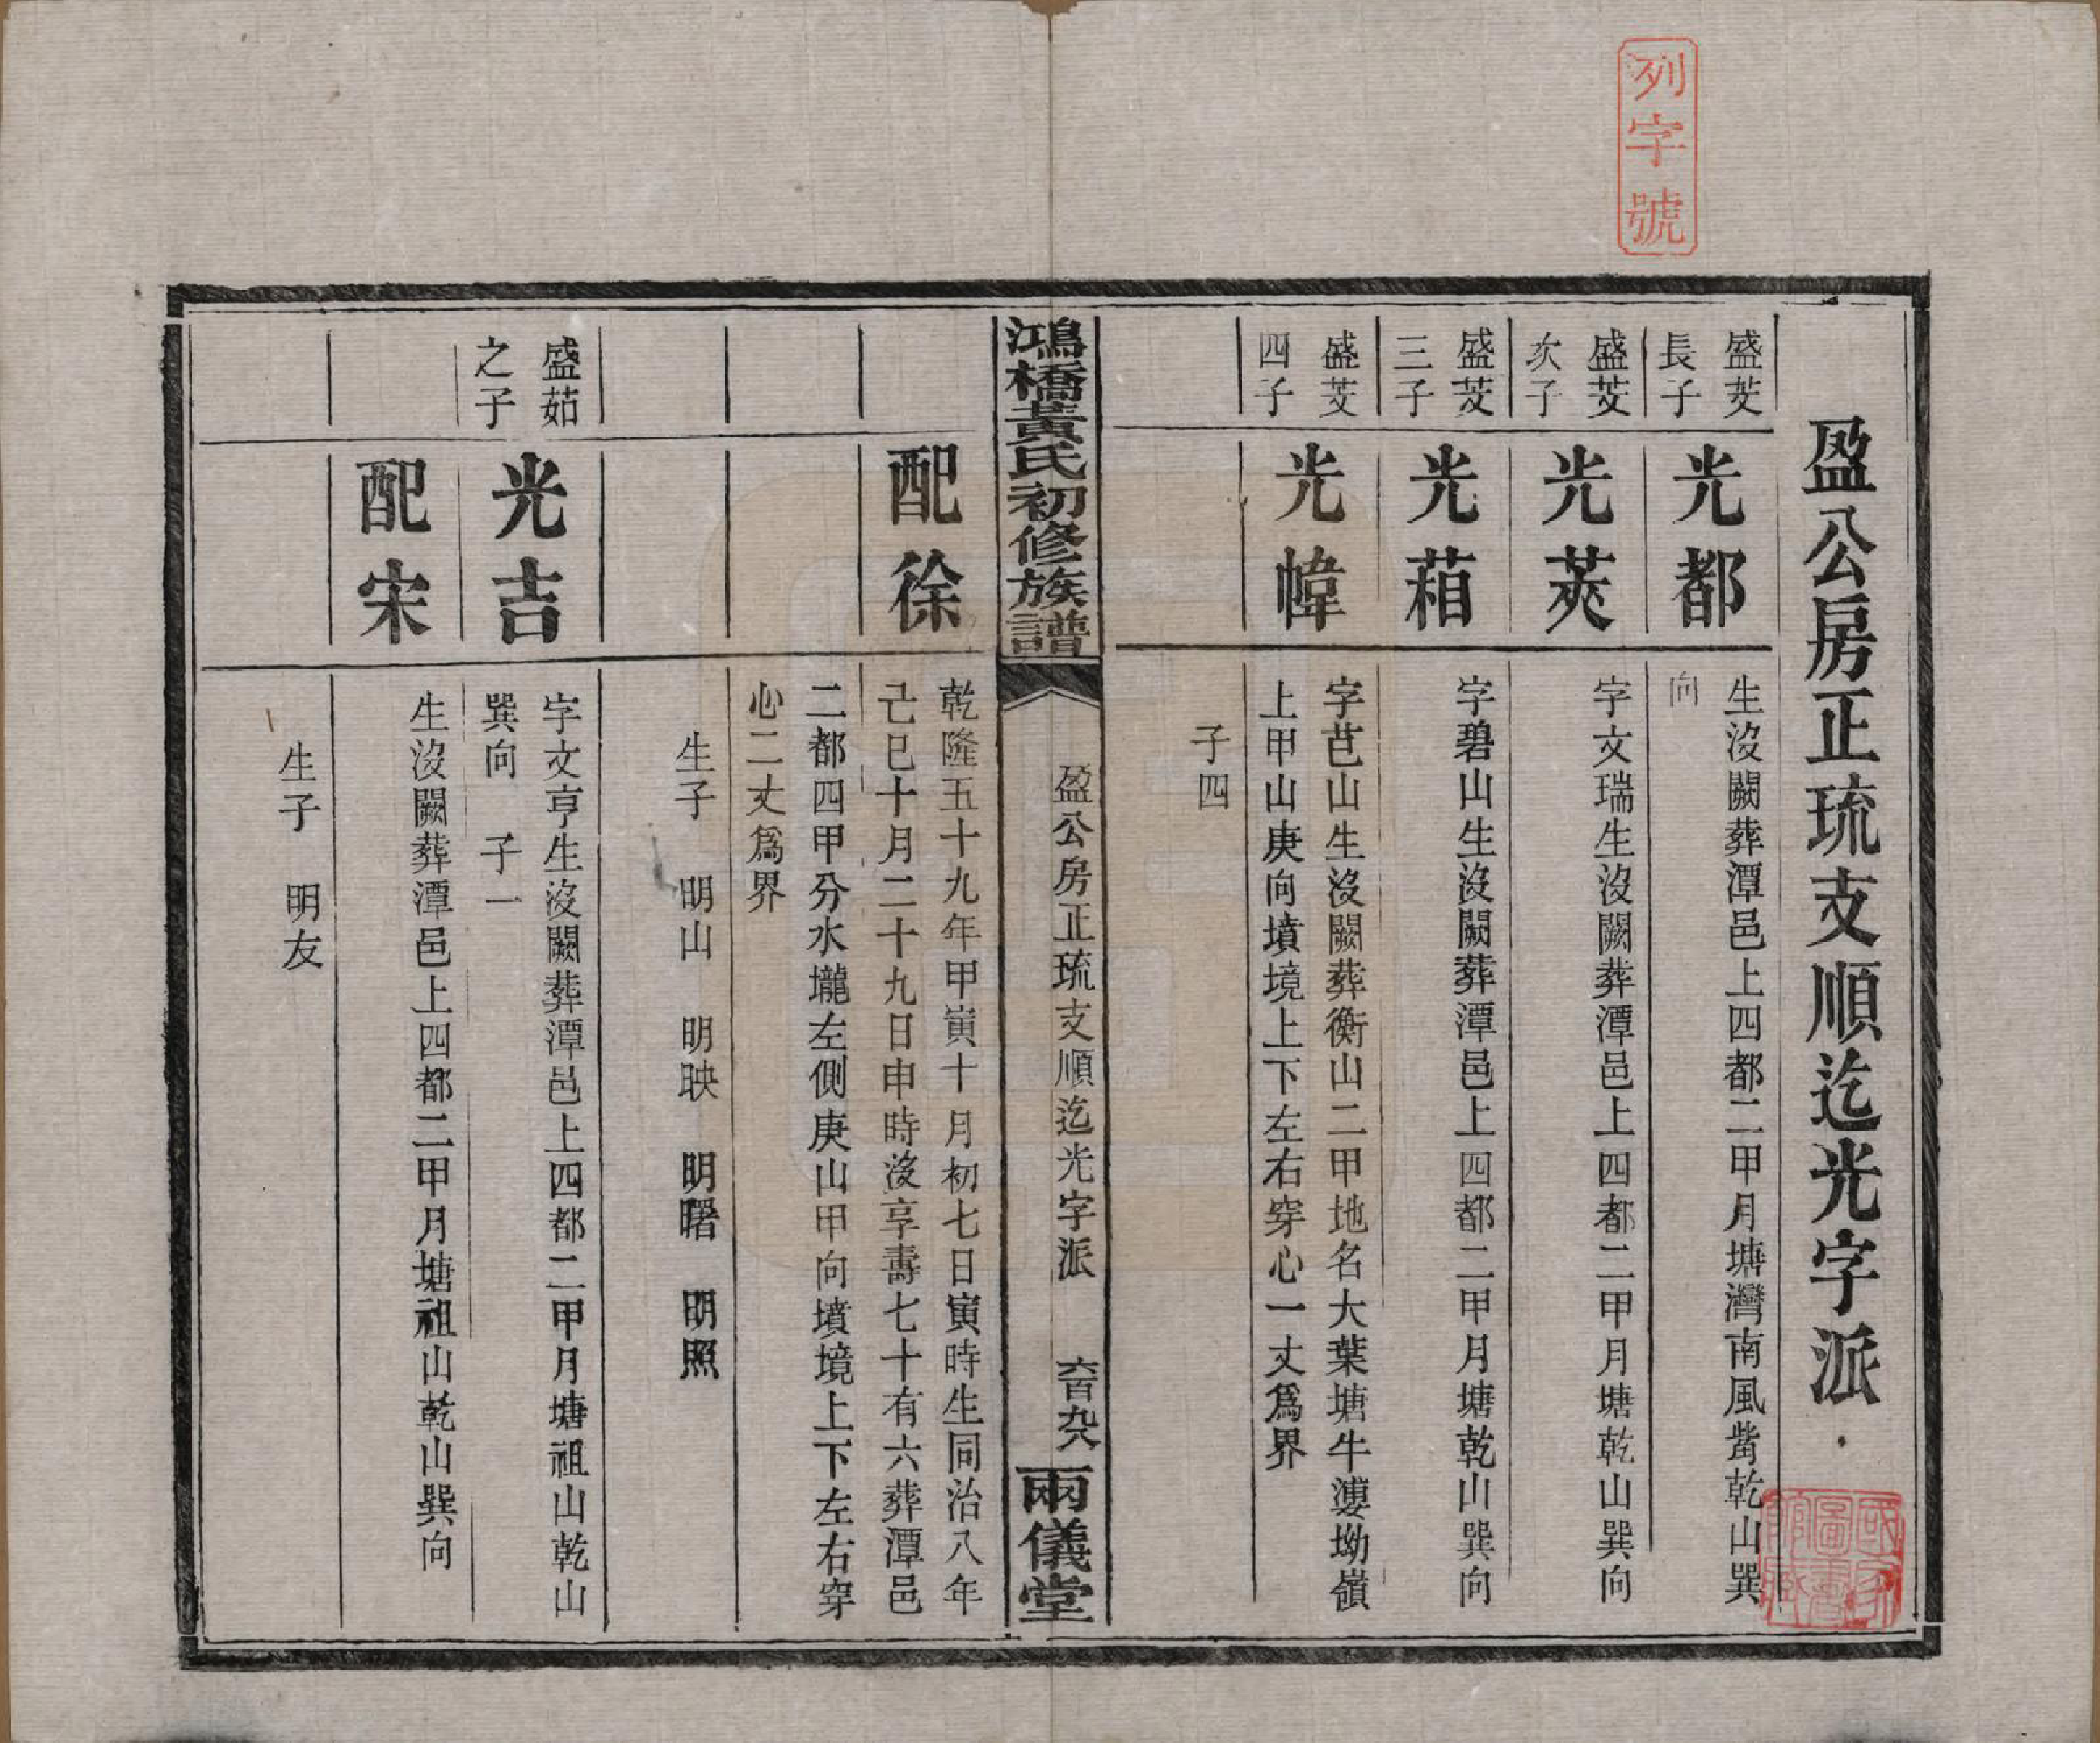 列字號
盈公房正琉支順迄光字派
盛芨
長子
光都
生沒闕葬潭邑上四都二甲月塘灣南風觜乾山巽
向
盛芨
次子
光莢
字文瑞生沒闕葬潭邑上四都二甲月塘乾山巽向
盛芨
三子
光萡
字碧山生沒闕葬潭邑上四都二甲月塘乾山巽向
盛芨
四子
光幃
字芑山生沒闕葬衡山二甲地名大葉塘牛漊坳嶺
上甲山庚向墳境上下左右穿心一丈爲界
子四
鴻橋黃氏初修族譜
盈公房正琉支順迄光字派
六百九六
兩儀堂
配徐
乾隆五十九年甲寅十月初七日寅時生同治八年
己巳十月二十九日申時沒享壽七十有六葬潭邑
二都四甲分水壠左側庚山甲向墳境上下左右穿
心二丈爲界
生子 明山 明映 明曙 明照
盛茹
之子
光吉
字文亨生沒闕葬潭邑上四都二甲月塘祖山乾山
巽向 子一
配宋
生沒闕葬潭邑上四都二甲月塘祖山乾山巽向
生子 明友